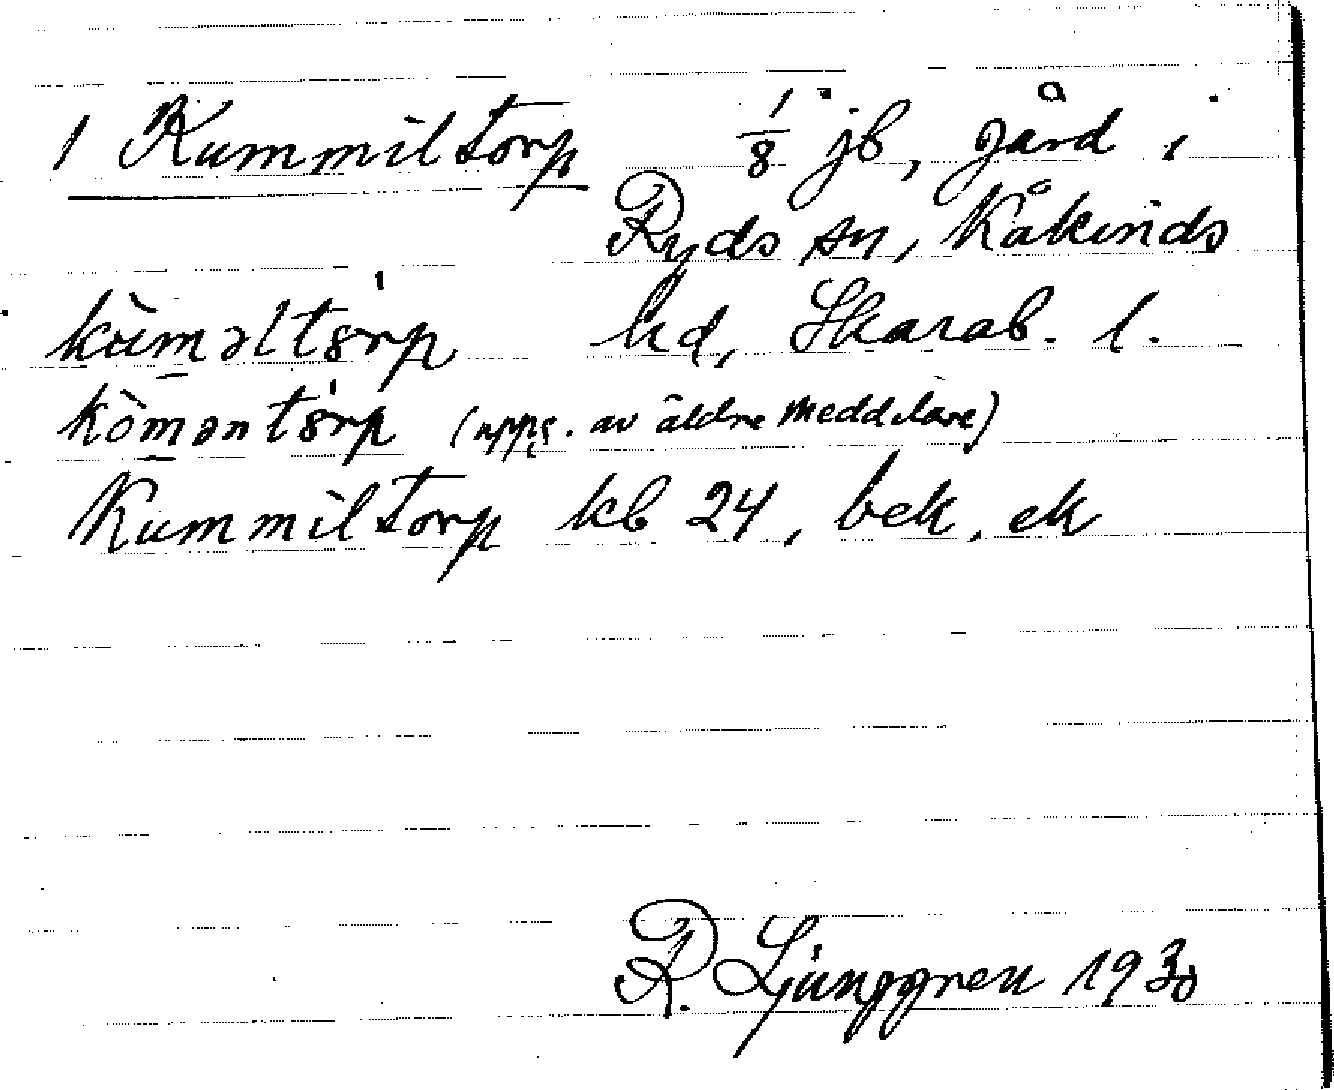 1 Kummiltorp 1/8 jb, gård i
Ryds sn, Kåkinds
kùməltǫrp hd, Skarab. l.
kòməntǫrp (uppg. av äldre meddelare)
Kummiltorp kb 24, bek, ek
R. Ljunggren 1930